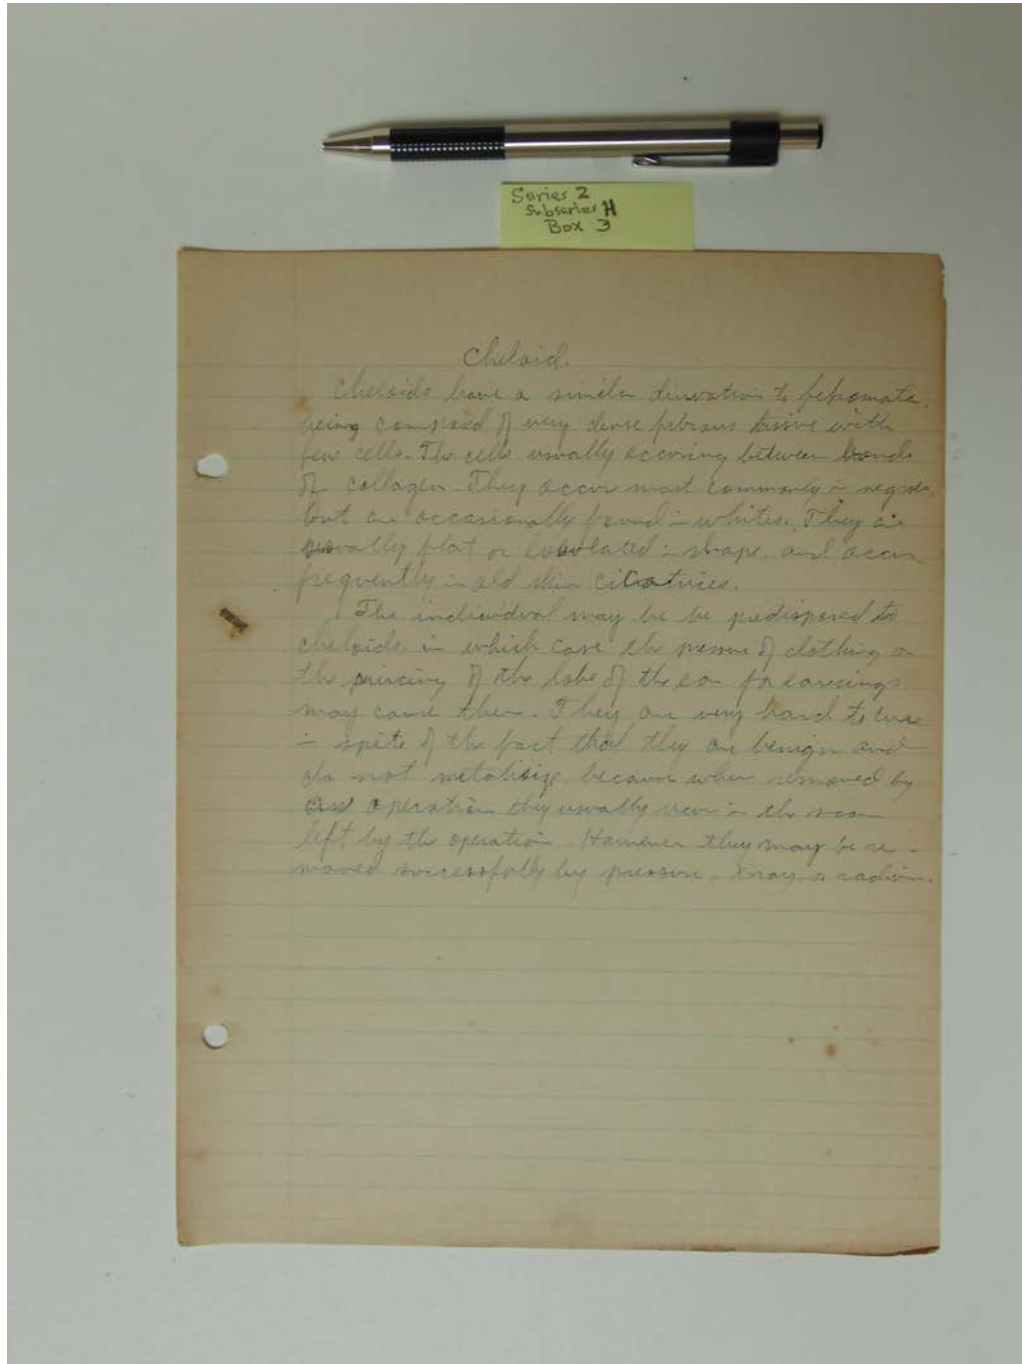 Series 2
Subseries H
Box 3
Cheloid.
Cheloids have a similar dirivation to fibromata,
being composed of very dense fibrous tissue with
few cells. The cells usually occuring between bands
of collagen. They occur most commonly in negroes,
but are occasionally found in whites. They are
usually flat or lobulated in shape, and occur
frequently in old skin cicatrices.
The individual may be be predisposed to
cheloids, in which case the pressure of clothing or
the piercing of the lobe of the ear for earrings
may cause them. They are very hard to cure
in spite of the fact that they are benign and
do not metastisize, because when removed by
an operation they usually recur in the scar
left by the operation. However they may be re-
moved successfully by pressure, Xray or radium.